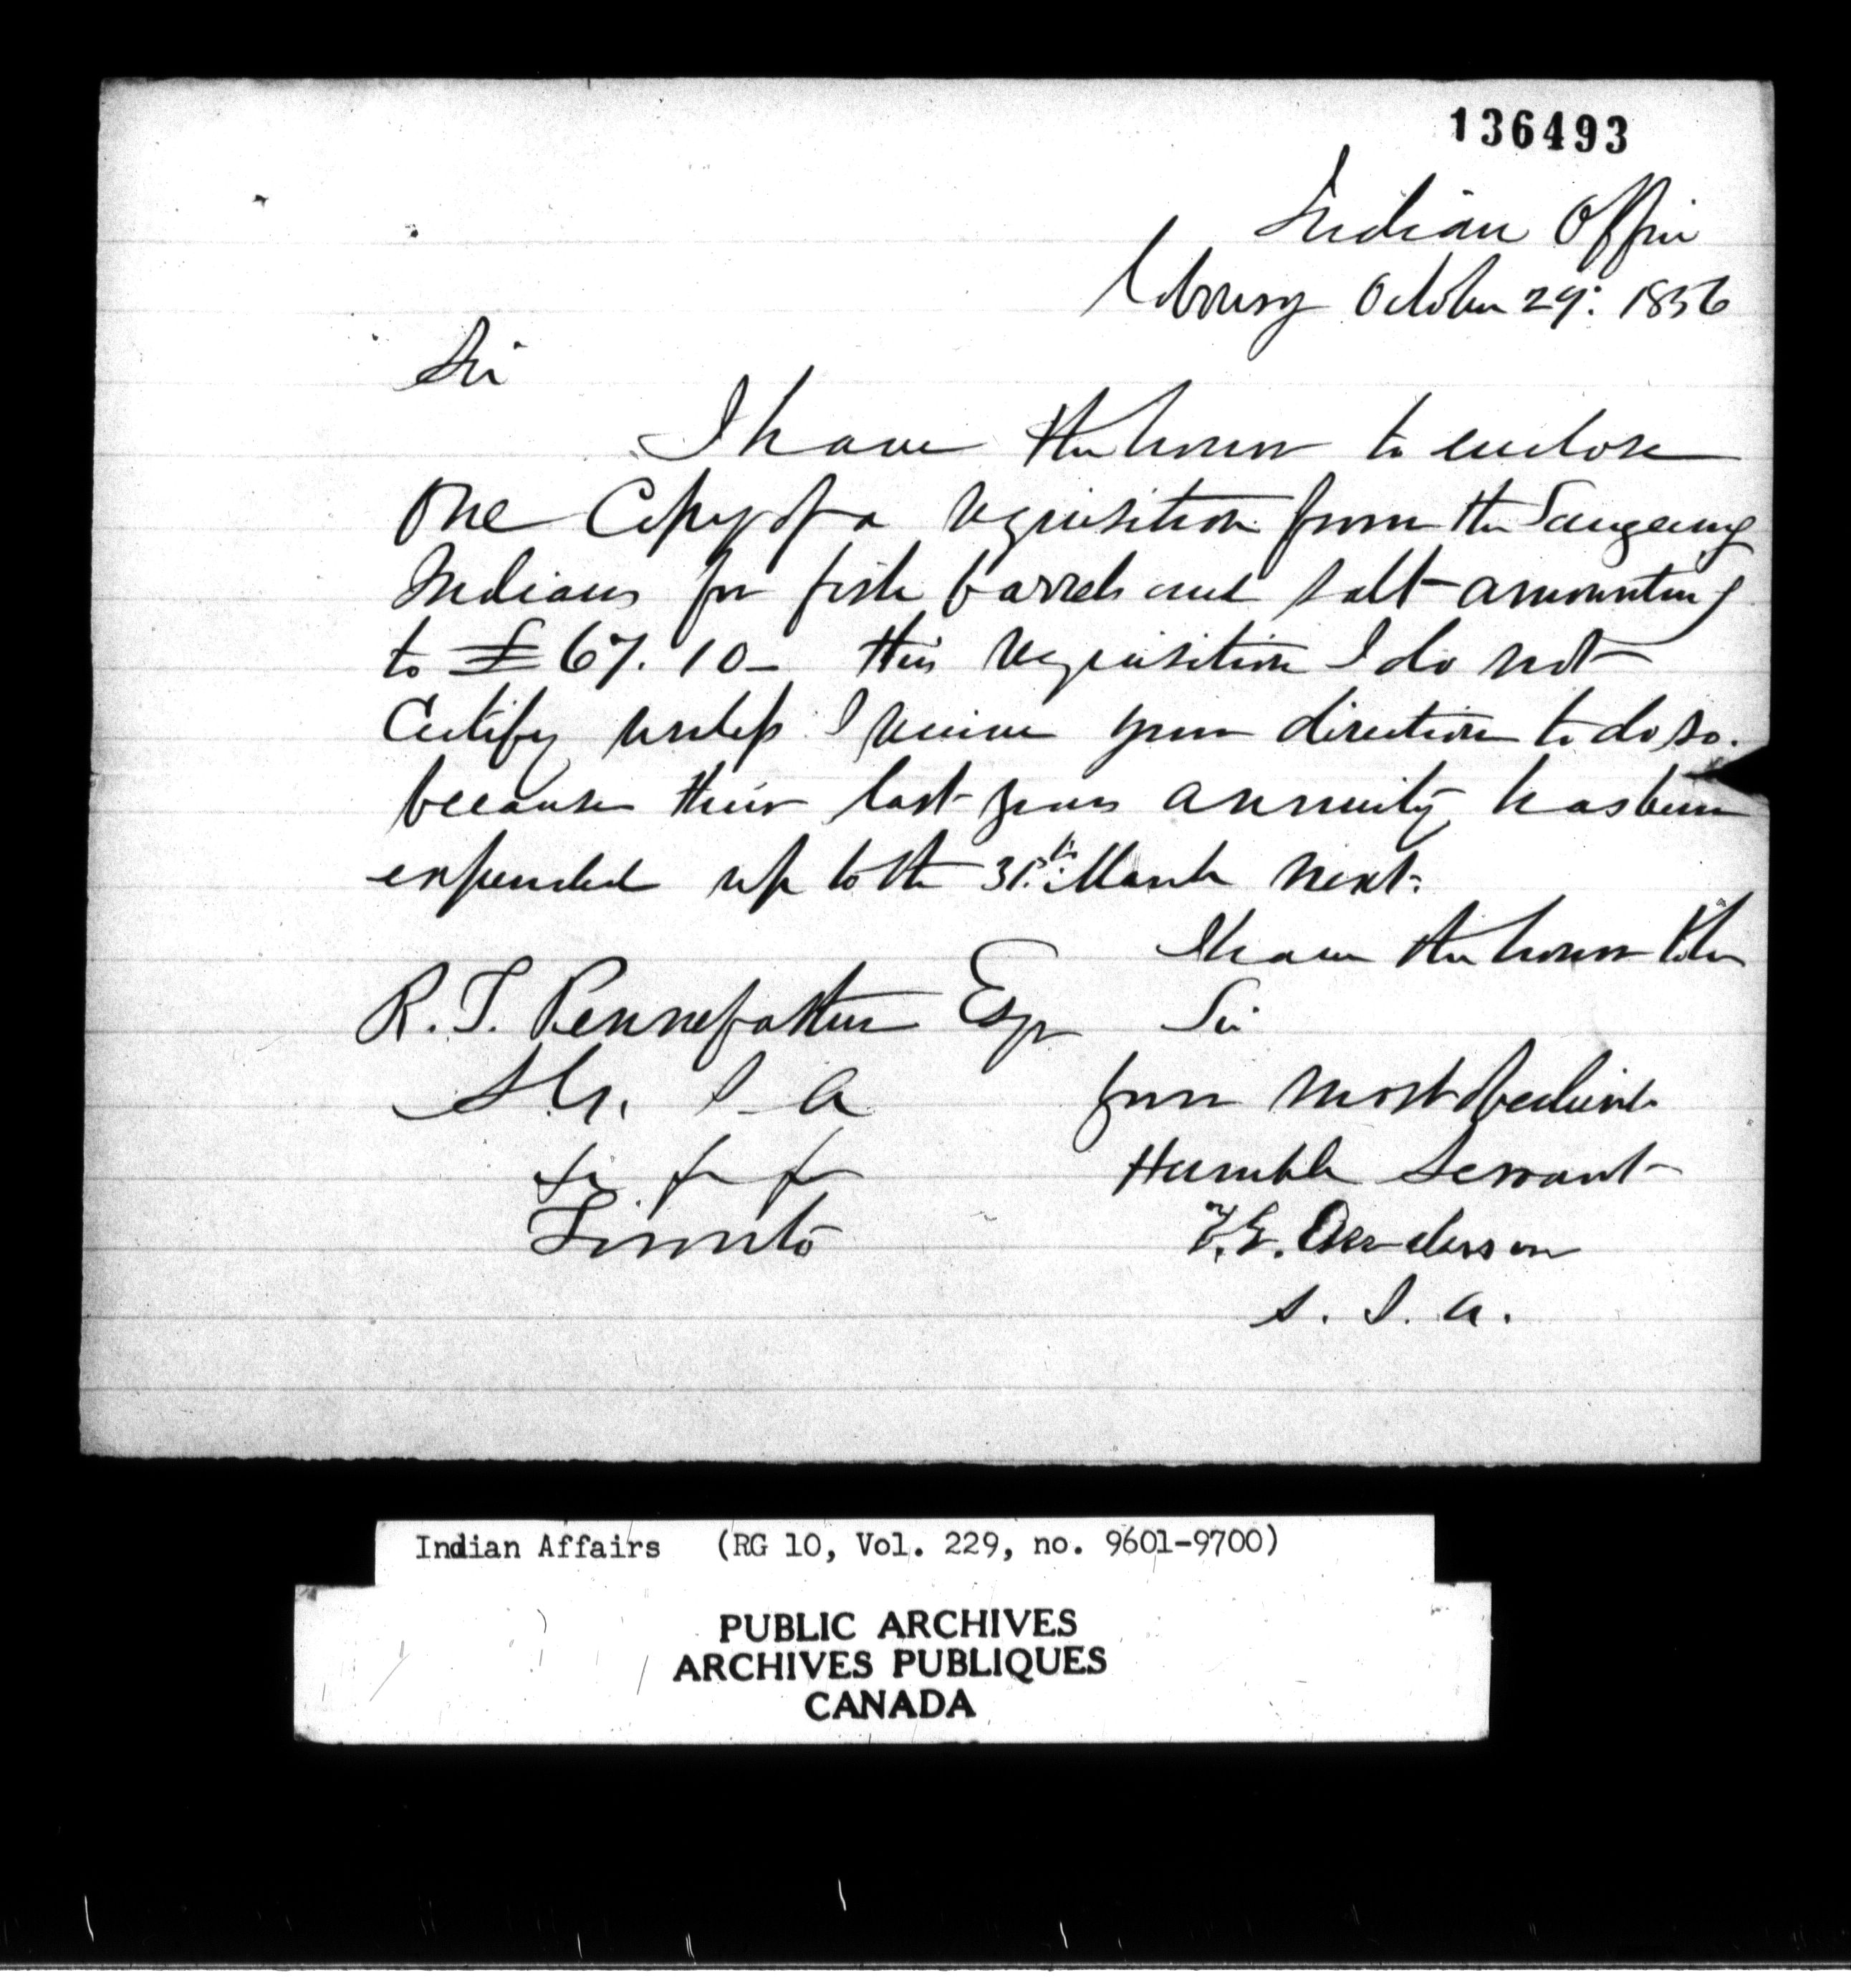 136493
Indian Office
Cobourg October 29: 1856
Sir
I have the honor to enclose
One Copy of a requisition from the Saugeeng
Indians for fish barrels and salt amounting
to £67.10– this requisition I do not
Certify unless I receive your direction to do so.
because their last years annuity has been
expended up to the 31st March next.
I have the honor to be
R. T. Pennefather Esqr Sir
S. G. I A your most obedient
&c &c &c Humble Servant
Toronto T. G. Anderson
S. I. A.
Indian Affairs (RG 10, Vol. 229, no. 9601-9700)
PUBLIC ARCHIVES
ARCHIVES PUBLIQUES
CANADA